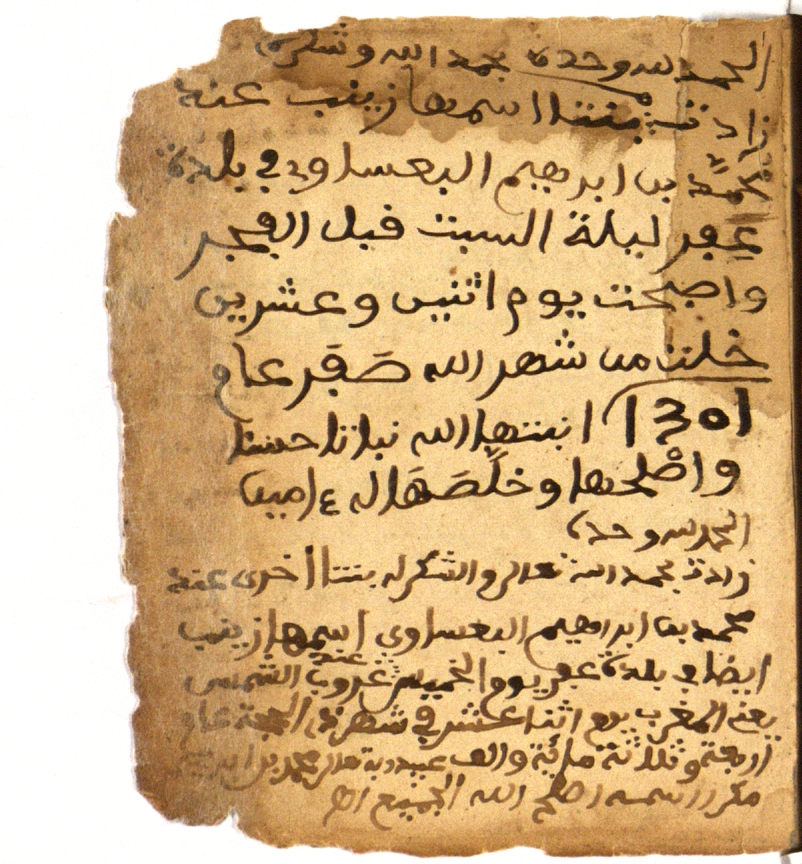 الحمد لله وحده بحمد الله وشكره
زادت بنتنا اسمها زينب عند
محمد بن ابراهيم البعساوي في بلده
عفر ليلة السبت قبل الفجر
واصبحت يوم اثنين وعشرين
خلت من شهر الله صَفَر عام
1301 انبتها الله نباتا حسنا
واصْلحها وخلّصَهَا له ءامين
الحمد لله وحده
زادت بحمد الله تعالى والشكر له بنتنا أخرى عند
محمد بن ابراهيم البعساوى اسمها زينب
ايضا في بلده عفر يوم الخميس عند غروب الشمس
يعني المغرب اثنا عشر في شهر ذي الحجة عام
اربعة وثلاثة مائة والف عبيد ربه محمد بن ابراهيم
اصلح الله الجميع